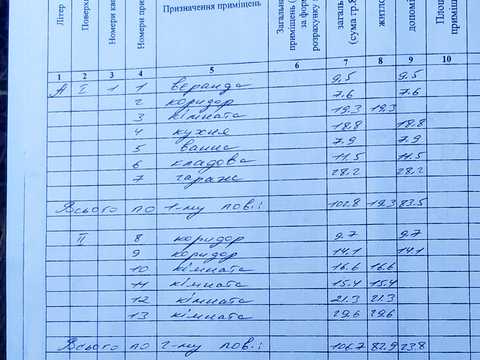 Літер
Поверх
Номери
Номери
Призначення приміщень
Загальна
приміщень
за фор
розрахунку
загаль
(сума гр.8
житло
допомі
Площ
приміщ
1 2 3 4 5 6 7 8 9 10
А І 1 1 веранда 9.5 9.5
2 коридор 7.6 7.6
3 кімната 19.3 19.3
4 кухня 18.8 18.8
5 ванна 7.9 7.9
6 кладова 11.5 11.5
7 гараж 28.2 28.2
Всього по 1-му пов.: 102.8 19.3 83.5
ІІ 8 коридор 9.7 9.7
9 коридор 14.1 14.1
10 кімната 16.6 16.6
11 кімната 15.4 15.4
12 кімната 21.3 21.3
13 кімната 29.6 29.6
Всього по 2-му пов.: 106.7 82.9 23.8